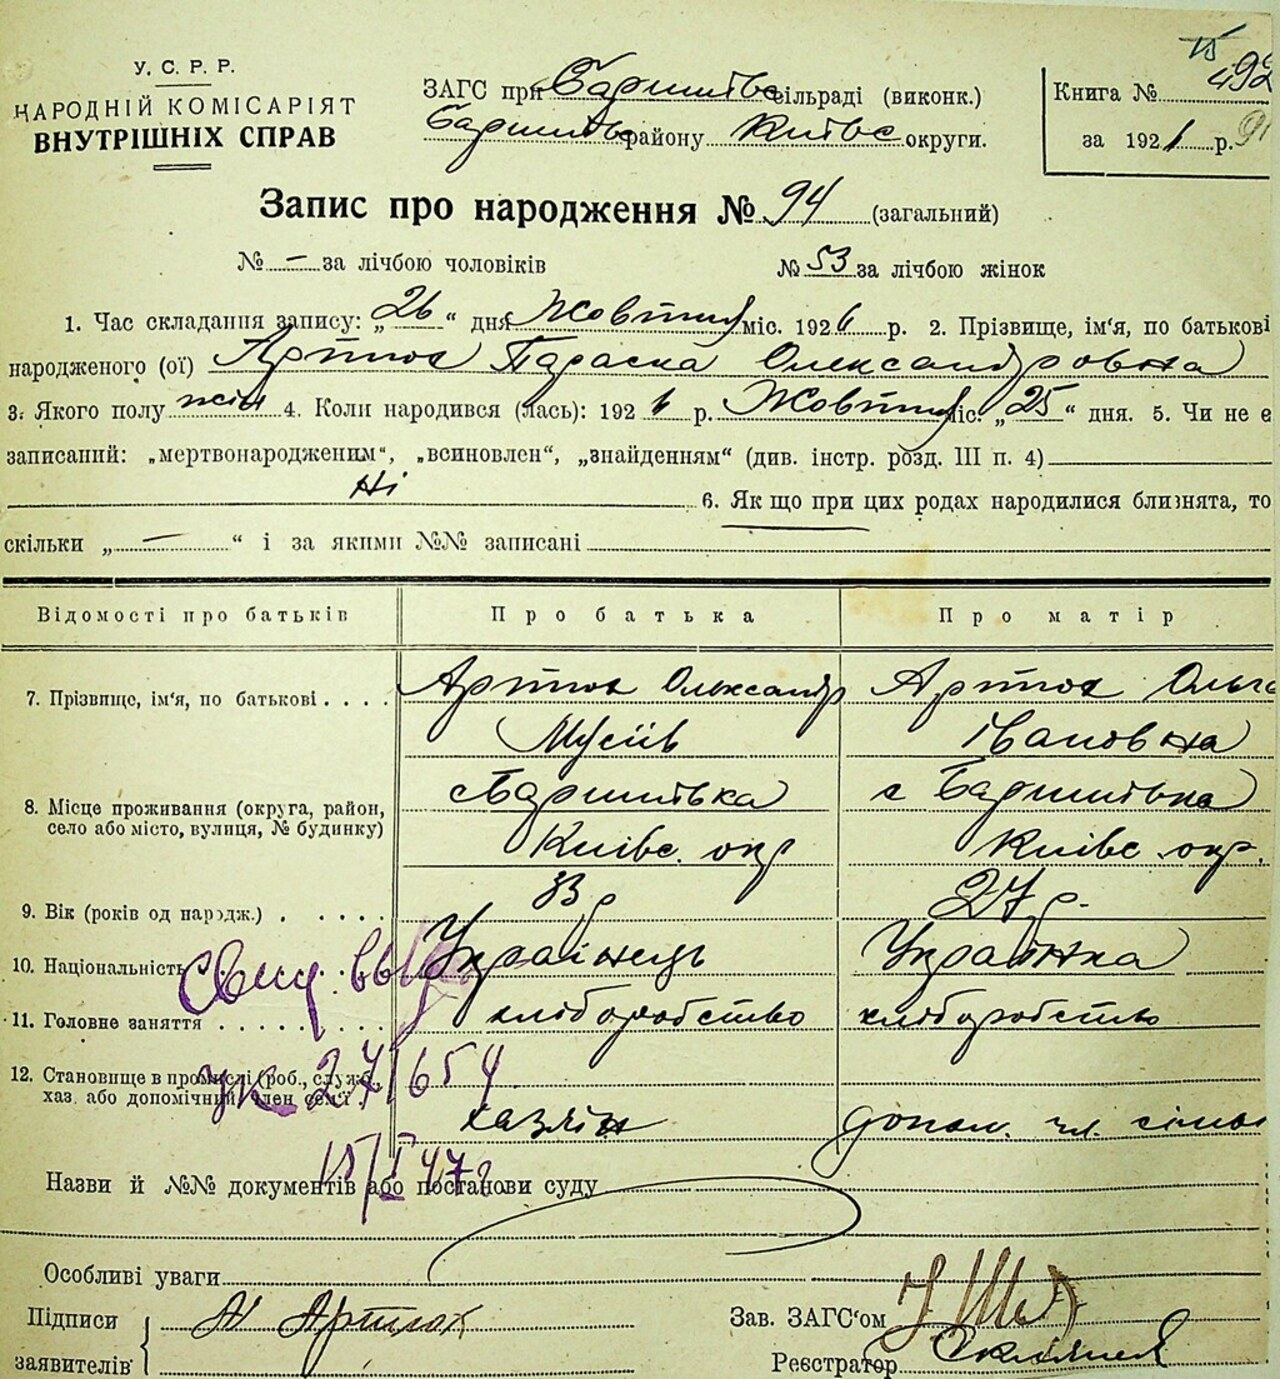 У. С. Р. Р.
НАРОДНІЙ КОМІСАРІЯТ
ВНУТРІШНІХ СПРАВ
ЗАГС при Баришівс сільраді (виконк.)
Баришівс району Київс округи.
Книга №
за 192 р.
Запис про народження № 94 (загальний)
№ — за лічбою чоловіків № 53 за лічбою жінок
1. Час складання запису: „26“ дня Жовтня міс. 1926 р. 2. Прізвище, ім‘я, по батькові
народженого (ої) Параска Олександровна
3. Якого полу жін 4. Коли народився (лась): 1926 р. Жовтня міс. „25“ дня. 5. Чи не є
записаний: „мертвонародженим“, „всиновлен“, „знайденням“ (див. інстр. розд. III п. 4)
Ні 6. Як що при цих родах народилися близнята, то
скільки „ — “ і за якими №№ записані
Відомості про батьків Про батька Про матір
7. Прізвище, ім‘я, по батькові Олександр Ольга
Мусіїв Івановна
8. Місце проживання (округа, район, село або місто, вулиця, № будинку) с Баришівка с Баришівка
Київс. окр Київс. окр.
9. Вік (років од нардж.) 33 р 27 р.
10. Національність Українець Українка
11. Головне заняття хліборобство хліборобство
12. Становище в промислі (роб., служб., хаз. або допомічний член сем‘ї)
хазяїн допом. чл. сімьі
УК 271654
Назви й №№ документів або постанови суду
Особливі уваги
Підписи
заявителів
Зав. ЗАГС‘ом
Реєстратор